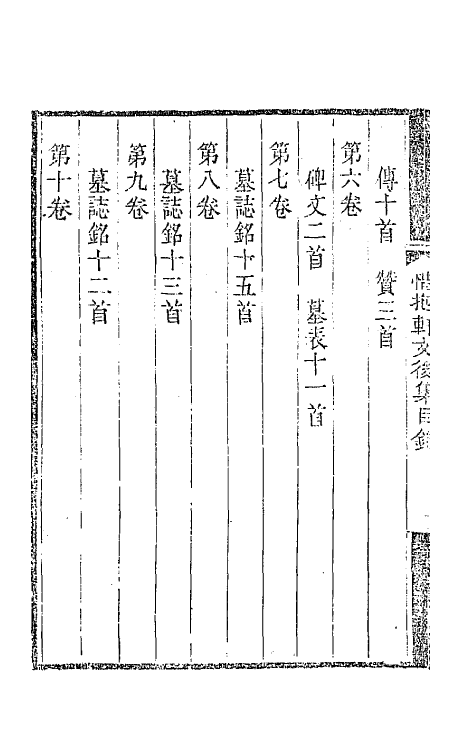 惜抱軒文後集目錄
傳十首　贊三首
第六卷
碑文二首　墓表十一首
第七卷
墓誌銘十五首
第八卷
墓誌銘十三首
第九卷
墓誌銘十二首
第十卷